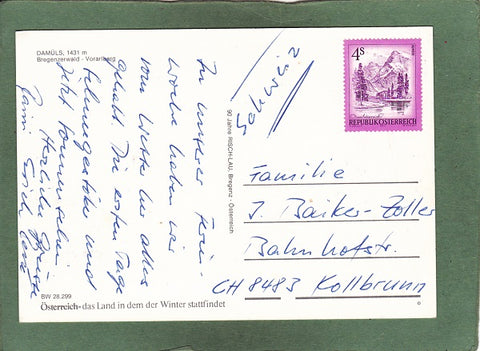 DAMÜLS, 1431 m
Bregenzerwald - Vorarlberg
In unserer Frei-
woche haben wir
vom Wetter her alles
gehabt. Die ersten Tage
Schneegestöber und
jetzt Sonnenschein
Herzliche Grüsse
90 Jahre RISCH-LAU, Bregenz - Österreich
Schweiz
4 S
REPUBLIK ÖSTERREICH
Familie
J. Baiker-Zoller
Bahnhofstr.
CH 8483 Kollbrunn
BW 28.299
Österreich-das Land in dem der Winter stattfindet